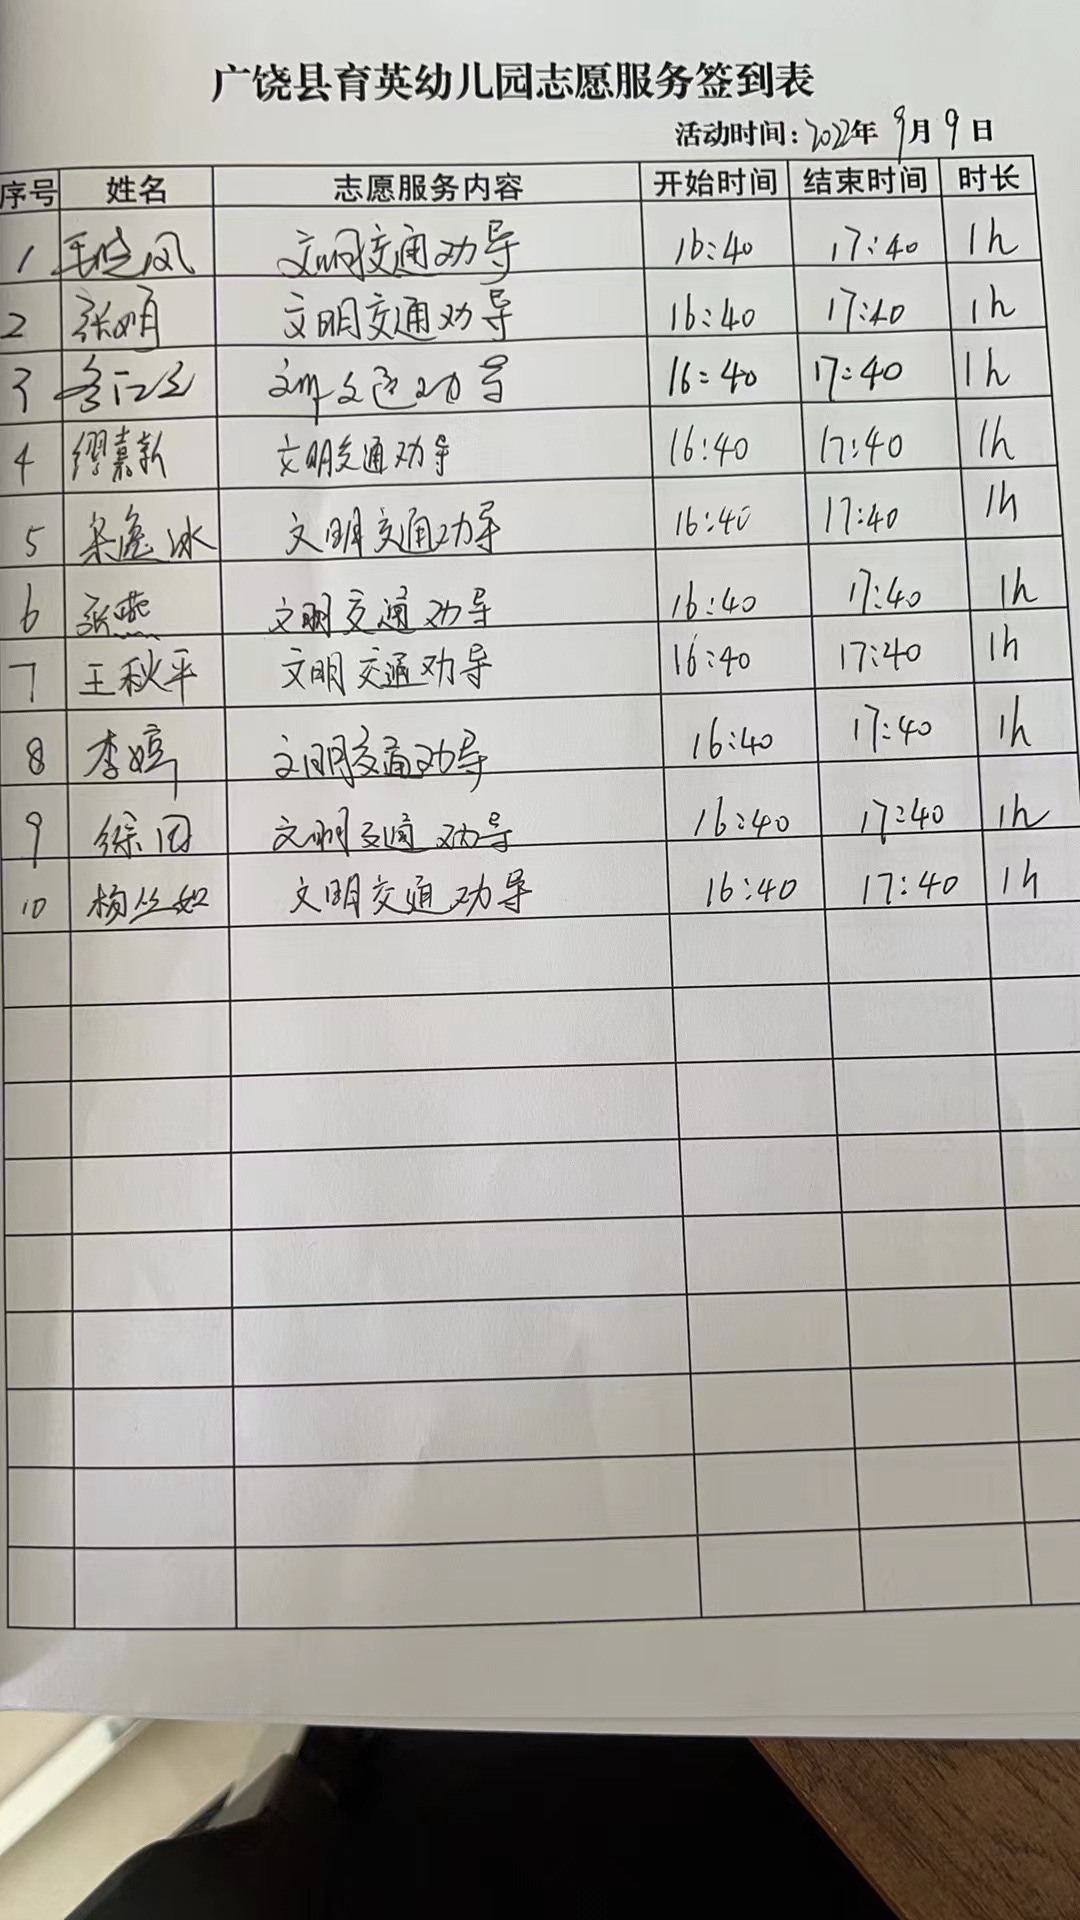 广饶县育英幼儿园志愿服务签到表
活动时间：2022年9月9日
序号 姓名 志愿服务内容 开始时间 结束时间 时长
1 文明交通劝导 16:40 17:40 1h
2 张娟 文明交通劝导 16:40 17:40 1h
3 文明交通劝导 16:40 17:40 1h
4 缪嘉新 文明交通劝导 16:40 17:40 1h
5 文明交通劝导 16:40 17:40 1h
6 张燕 文明交通劝导 16:40 17:40 1h
7 王秋平 文明交通劝导 16:40 17:40 1h
8 李婷 文明交通劝导 16:40 17:40 1h
9 文明交通劝导 16:40 17:40 1h
10 文明交通劝导 16:40 17:40 1h